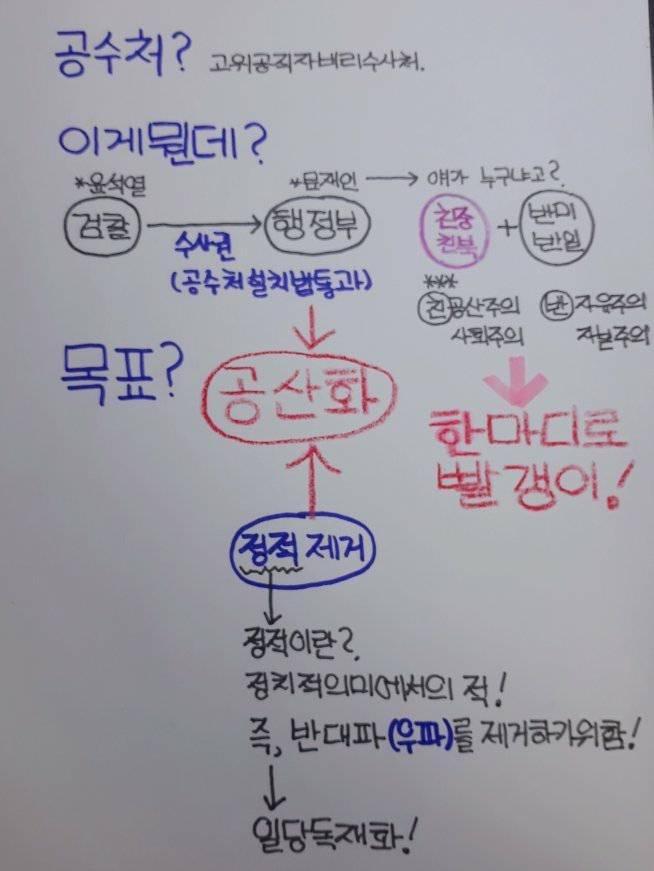 공수처? 고위공직자비리수사처.
이게뭔데?
*윤석열
검찰
수사권
(공수처설치법통과)
*문재인
행정부
얘가 누구냐고?
친중
친북
+
반미
반일
***
친공산주의
사회주의
반자유주의
자본주의
한마디로
빨갱이!
목표?
공산화
정적제거
정적이란?
정치적의미에서의 적!
즉, 반대파(우파)를 제거하기위함!
일당독재화!